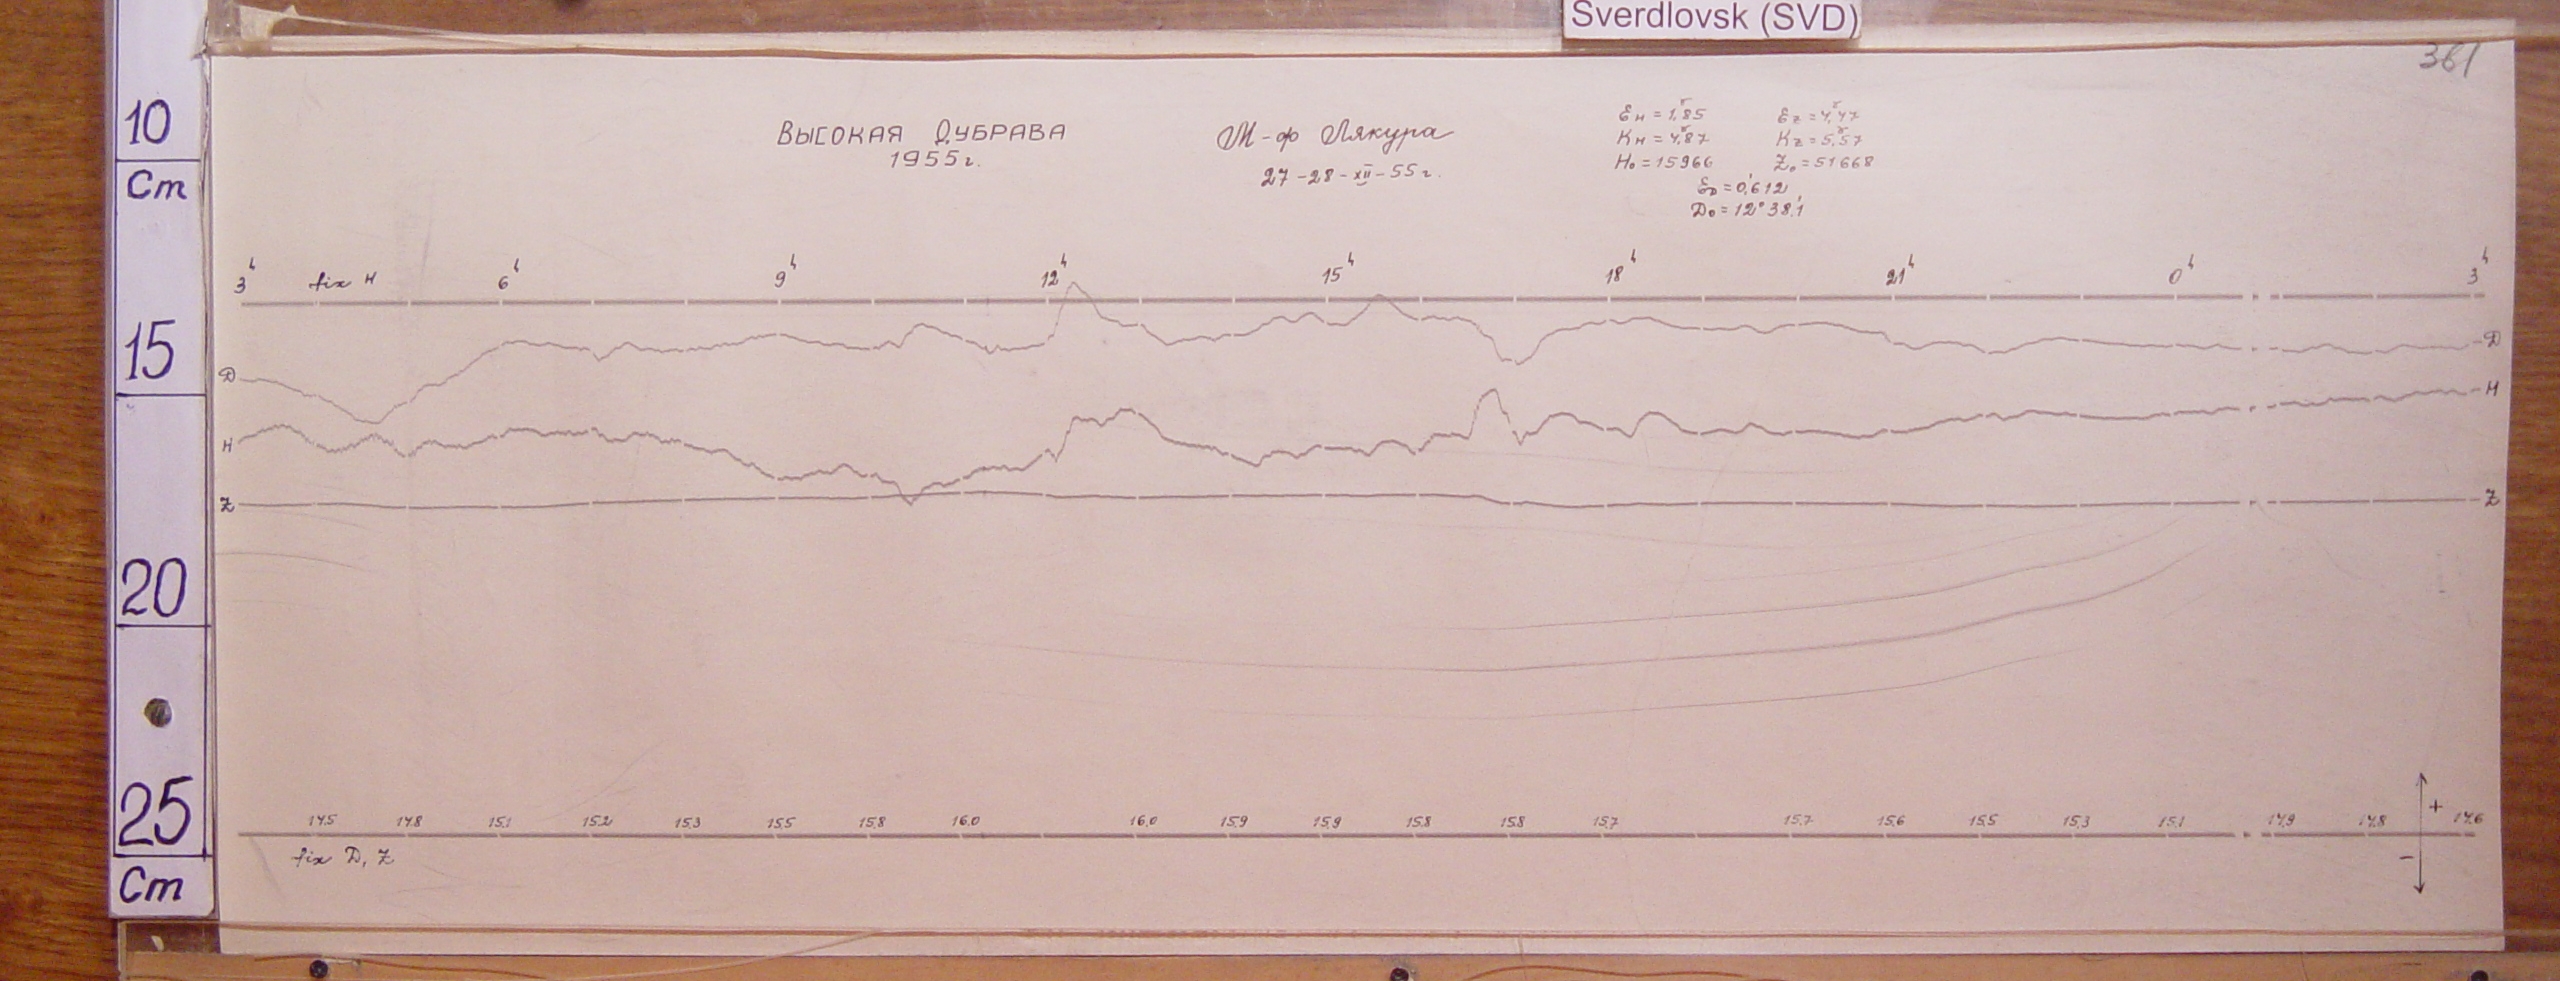 Sverdlovsk (SVD)
361
10
Cm
15
20
25
Cm
ВЫСОКАЯ ДУБРАВА
1955 г.
М-ф Лякура
27-28-XII-55 г.
Ɛн = 1,γ85 Ɛz = 4,γ47
Кн = 4,γ87 Кz = 5,γ57
H₀ = 15966 Z₀ = 51668
ƐD = 0,'612
D₀ = 12° 38,'1
3ʰ fix H 6ʰ 9ʰ 12ʰ 15ʰ 18ʰ 21ʰ 0ʰ 3ʰ
D D
H H
Z Z
14.5 14.8 15.1 15.2 15.3 15.5 15.8 16.0 16.0 15.9 15.9 15.8 15.8 15.7 15.7 15.6 15.5 15.3 15.1 14.9 14.8 14.6
+
-
fix D, Z